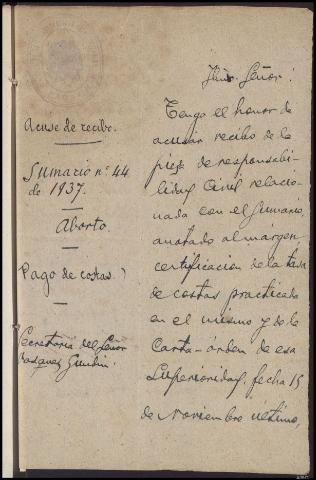 Acuse de recibo.
Sumario nº 44
de 1937.
Aborto.
Pago de costas.
Secretaria del Señor
Iltmo. Señor:
Tengo el honor de
acusar recibo de la
pieza de responsabi-
lidad Civil relacio-
nada con el Sumario
anotado al márgen
certificacion de la tasa
de costas practicada
en el mismo y de la
Carta-órden de esa
Superioridad, fecha 15
de Noviembre último,